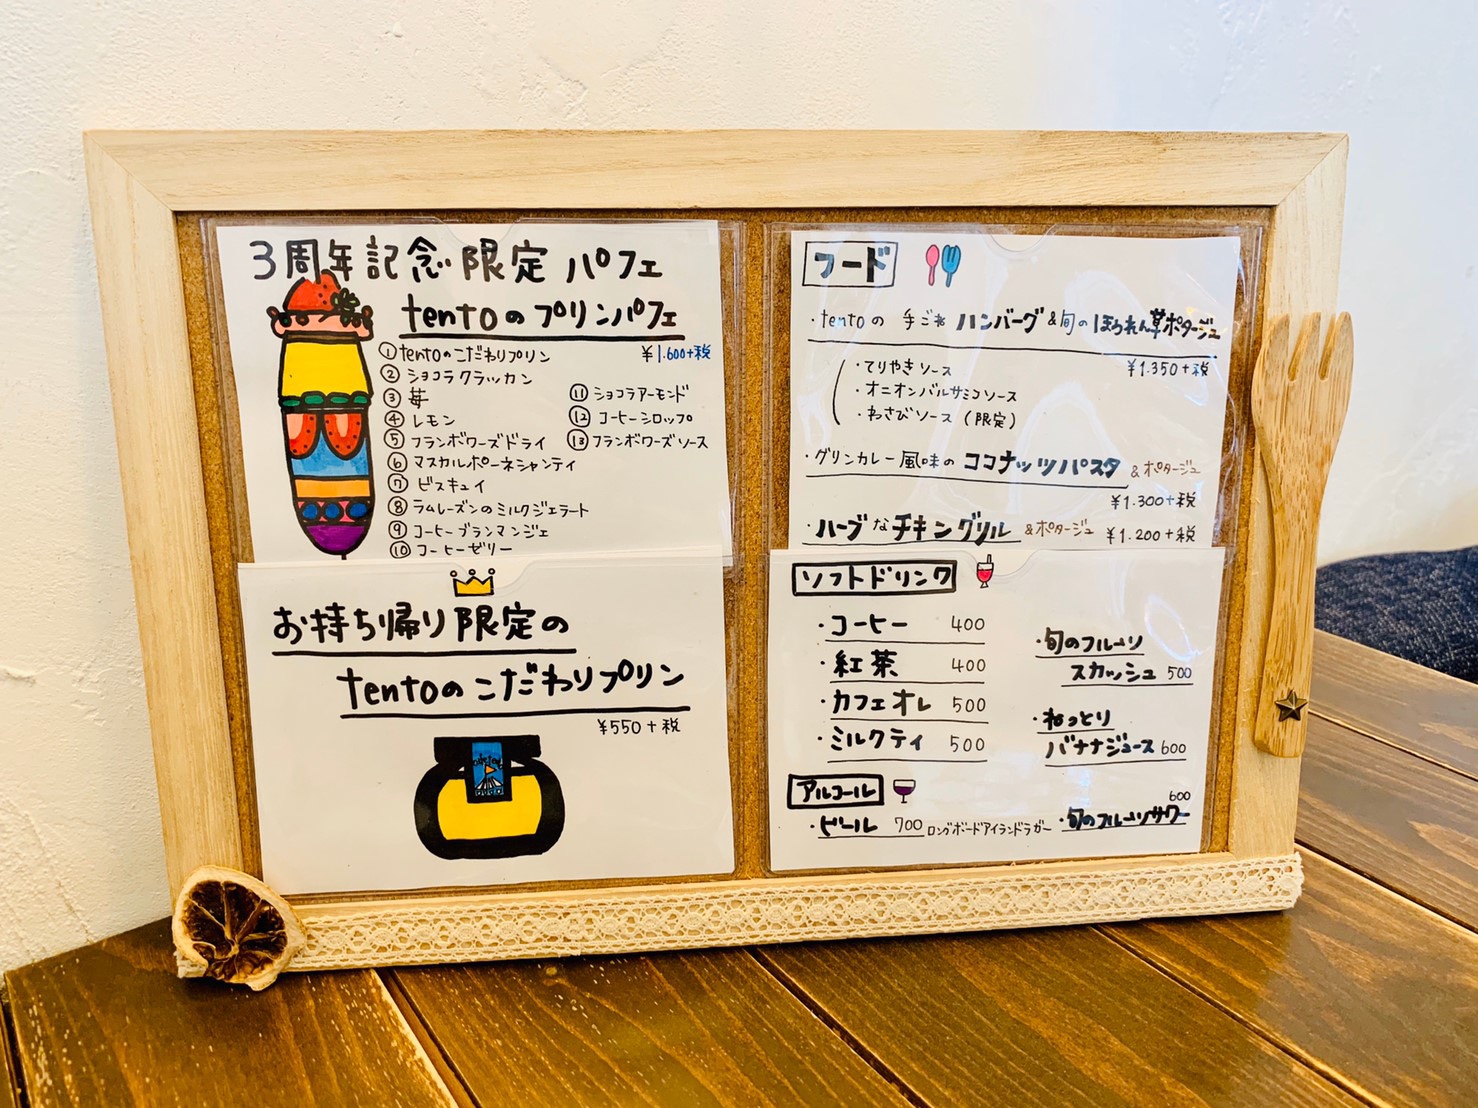 3周年記念限定 パフェ
tentoのプリンパフェ
¥1.600+税
①tentoのこだわりプリン
②ショコラクラッカン
③苺
④レモン
⑤フランボワーズドライ
⑥マスカルポーネシャンティ
⑦ビスキュイ
⑧ラムレーズンのミルクジェラート
⑨コーヒーブランマンジェ
⑩コーヒーゼリー
⑪ショコラアーモンド
⑫コーヒーシロップ
⑬フランボワーズソース
お持ち帰り限定の
tentoのこだわりプリン
¥550+税
フード
・tentoの 手ごねハンバーグ&旬のほうれん草ポタージュ
¥1.350+税
・てりやきソース
・オニオンバルサミコソース
・わさびソース(限定)
・グリンカレー風味のココナッツパスタ&ポタージュ
¥1.300+税
・ハーブなチキングリル&ポタージュ ¥1.200+税
ソフトドリンク
・コーヒー 400
・紅茶 400
・カフェオレ 500
・ミルクティ 500
・旬のフルーツ
スカッシュ 500
・ねっとり
バナナジュース 600
アルコール
・ビール 700 ロングボードアイランドラガー
・旬のフルーツサワー 600